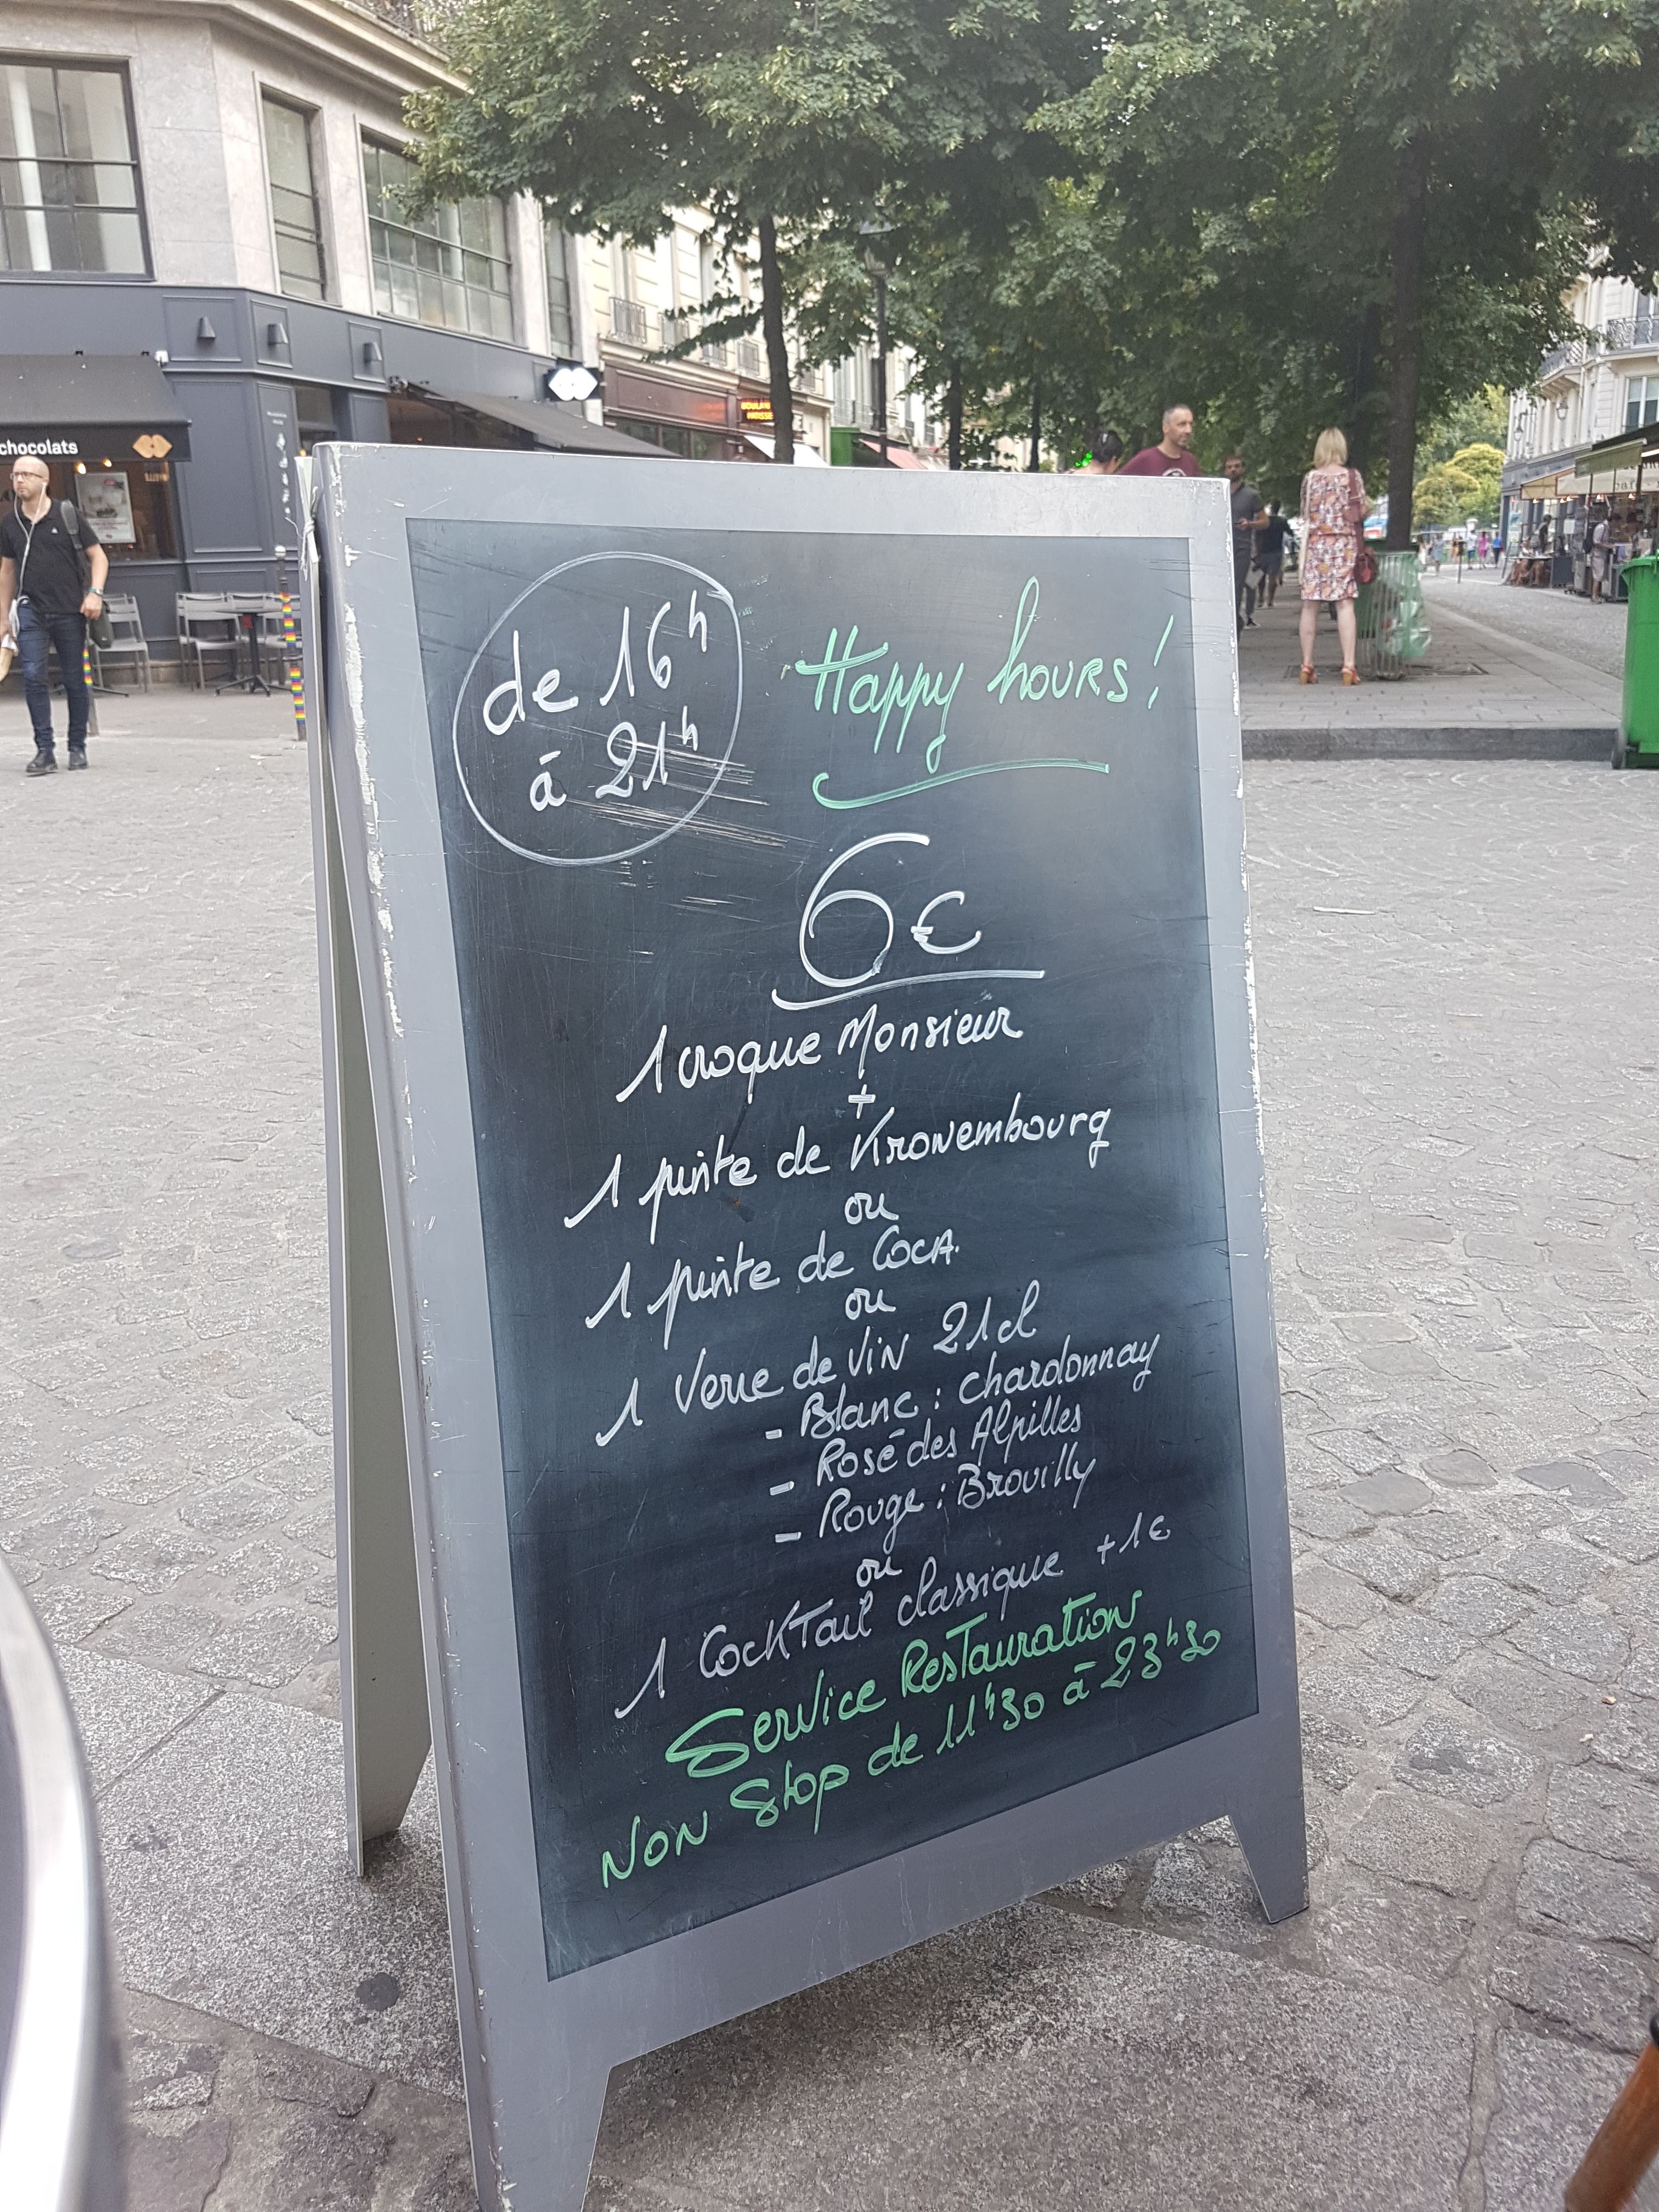 chocolats
de 16h
à 21h
Happy hours!
6€
1 croque Monsieur
+
1 pinte de Kronembourg
ou
1 pinte de Coca.
ou
1 Verre de Vin 21cl
- Blanc : Chardonnay
- Rosé des Alpilles
- Rouge : Brouilly
ou
1 Cocktail classique +1€
Service Restauration
Non Stop de 11h30 à 23h30